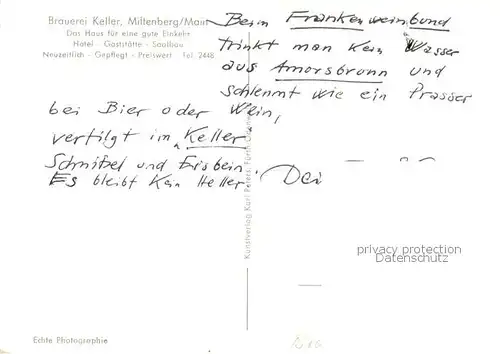 Brauerei Keller, Miltenberg/Main
Das Haus für eine gute Einkehr
Hotel - Gaststätte - Saalbau
Neuzeitlich - Gepflegt - Preiswert Tel. 2448
Beim Frankenweinbund
trinkt man kein Wasser
aus Amorsbrunn und
schlemmt wie ein Prasser
bei Bier oder Wein,
vertilgt im "Keller"
Schnitzel und Eisbein.
Es bleibt kein Heller.
Dei
Kunstverlag Karl Peters, Fürth
privacy protection
AnsichtskartenVersand.com
Echte Photographie